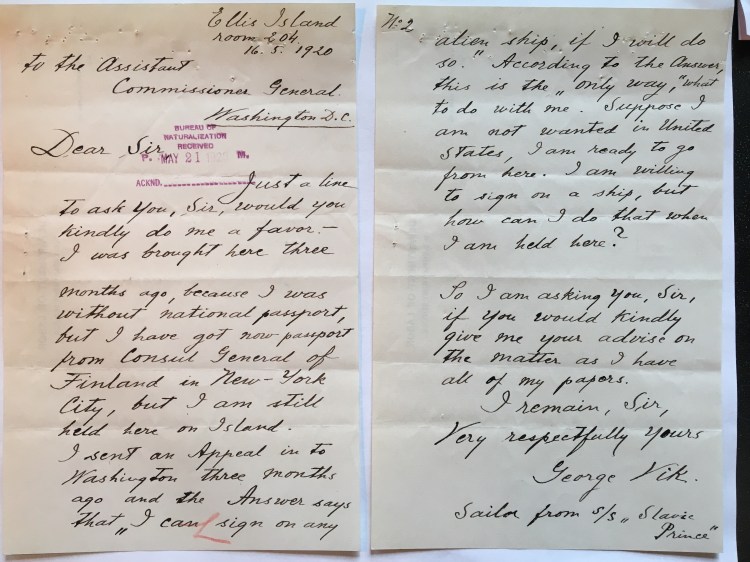 Ellis Island
room 204
16. 5. 1920
to the Assistant
Commissioner General.
Washington D.C.
Dear Sir
BUREAU OF
NATURALIZATION
RECEIVED
P. MAY 21 M.
ACKND.
Just a line
to ask You, Sir, would you
kindly do me a favor.—
I was brought here three
months ago, because I was
without national passport,
but I have got now passport
from Consul General of
Finland in New-York
City, but I am still
held here on Island.
I sent an Appeal in to
Washington three months
ago and the Answer says
that „I can sign on any
№2
alien ship, if I will do
so." According to the Answer,
this is the „only way," what
to do with me. Suppose I
am not wanted in United
States, I am ready to go
from here. I am willing
to sign on a ship, but
how can I do that when
I am held here?
So I am asking You, Sir,
if You would kindly
give me your advise on
the matter as I have
all of my papers.
I remain, Sir,
Very respectfully Yours
George Vik.
Sailor from s/s „Slavic
Prince"